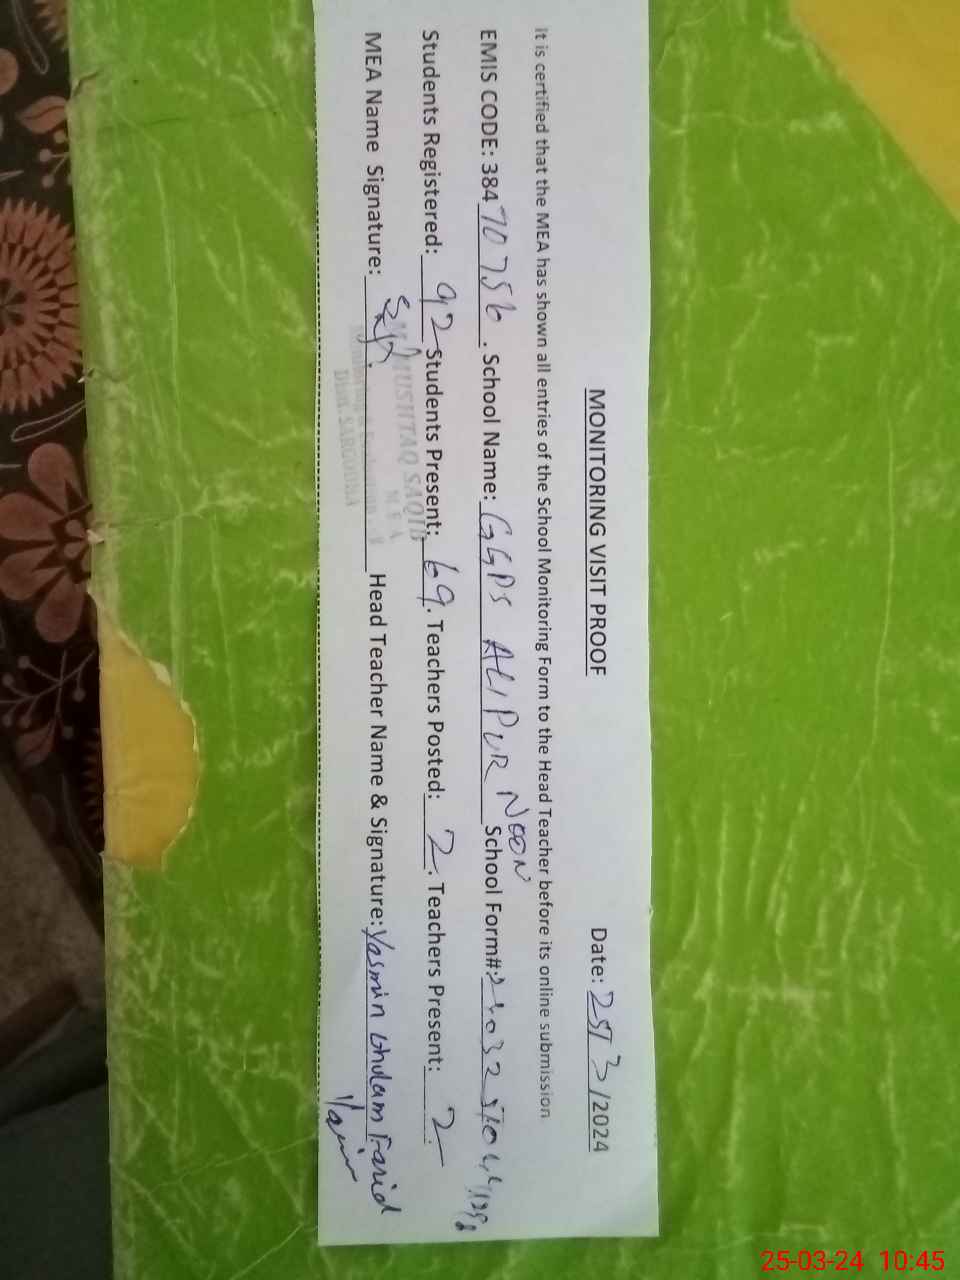 MONITORING VISIT PROOF Date: 25/3/2024
It is certified that the MEA has shown all entries of the School Monitoring Form to the Head Teacher before its online submission
EMIS CODE: 38470756. School Name: GGPS ALIPUR NOON School Form#:
Students Registered: 92 Students Present: 69. Teachers Posted: 2. Teachers Present: 2.
MUSHTAQ SAQIB
M E A
Dist. SARGODHA
MEA Name Signature: Head Teacher Name & Signature: Yasmin Ghulam Farid
25-03-24 10:45